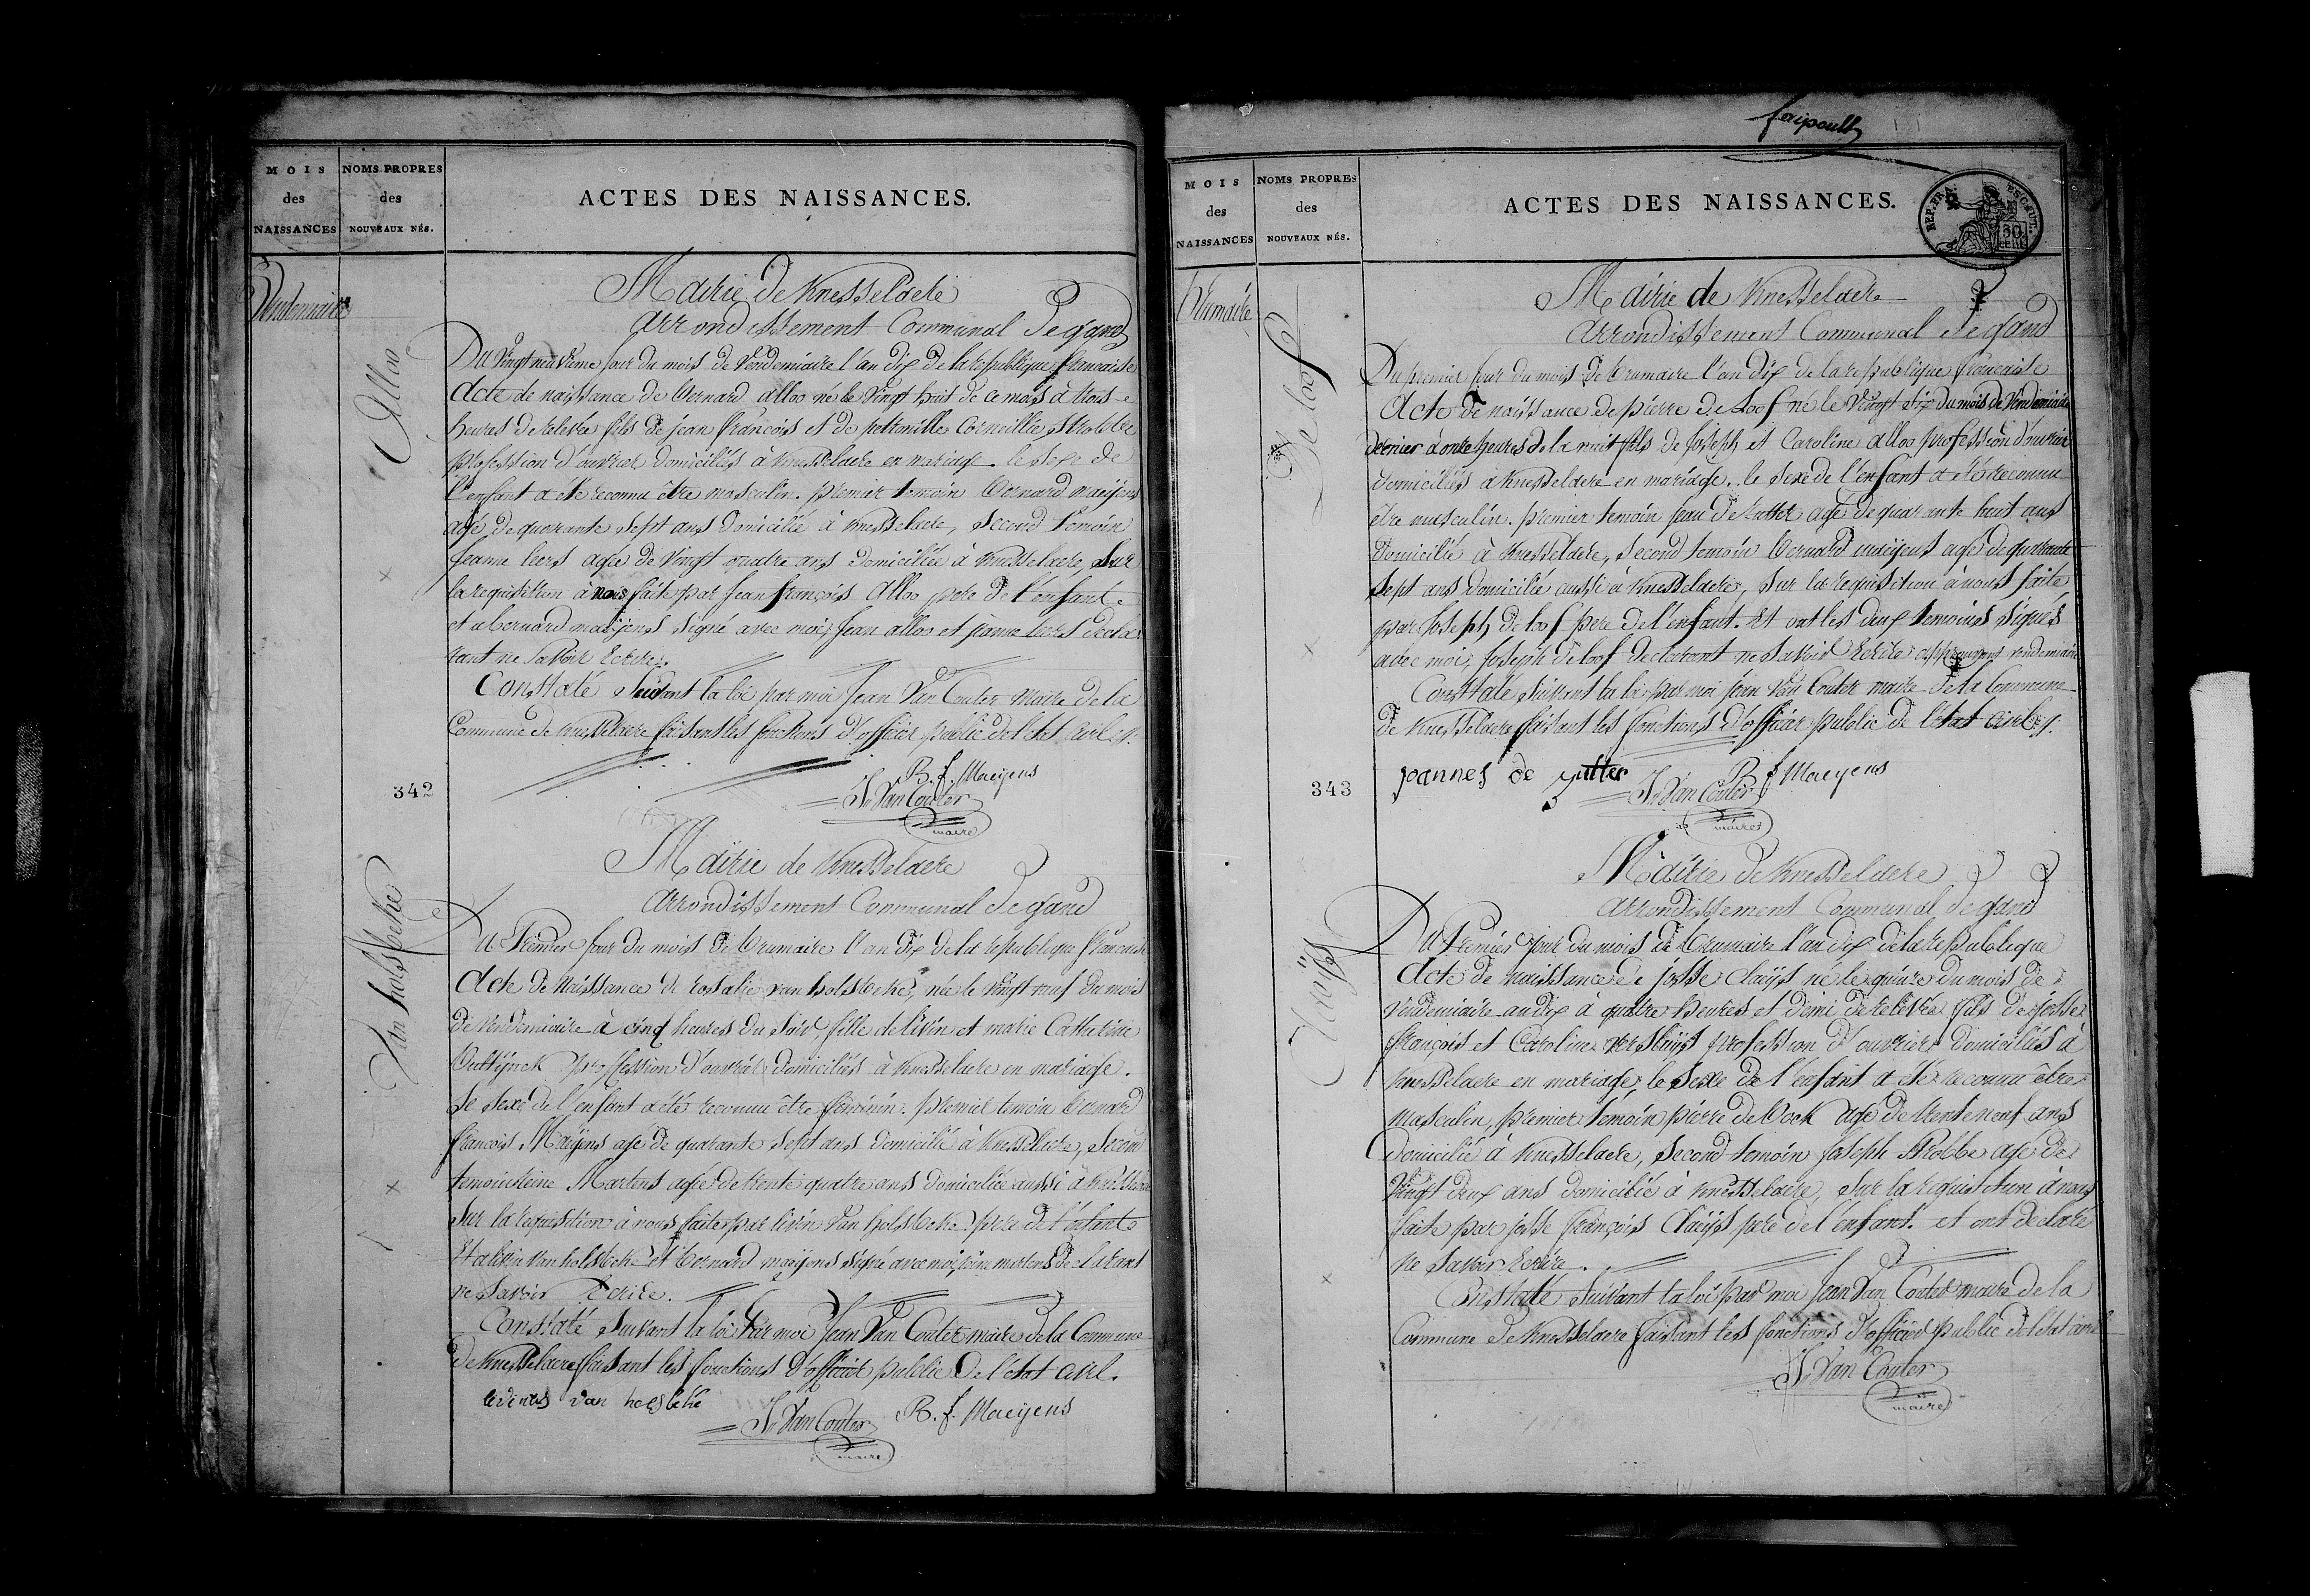 MOIS
des
NAISSANCES
NOMS PROPRES
des
NOUVEAUX NÉS.
ACTES DES NAISSANCES.
Vendemiaire
Alloo
Mairie de Knesselaere
arrondissement Communal de gand
Du Vingt neuvieme jour du mois de Vendemiaire l'an dix de la republique francaise
Acte de naissance de Bernard alloo né le Vingt huit de ce mois à trois
heures de relevée fils de jean francois et de pettronille Corneillie Strobbe
profession d'ouvrier domiciliés à Knesselaere en mariage. le sexe de
l'enfant a été reconnu être masculin. premier temoin Bernard maeijens
agé de quarante sept ans domicilié à Knesselaere, second temoin
jeanne leers agée de vingt quatre ans domiciliée à Knesselaere, sur
la requisition à nous faite par jean françois Alloo pere de l'enfant
et a bernard maeijens signé avec moi, jean alloo et jeanne leers decla
rant ne savoir Ecrire.
Constaté Suivant la loi par moi Jean Van Couter maire de la
Commune de Knesselaere faisant les fonctions d'officier public de l'etat Civil
B. f. Maeijens
J. Van Couter
maire
342
Van holsbeke
Mairie de Knesselaere
arrondissement Communal de gand
Du Premier jour du mois de brumaire l'an dix de la republique francaise
Acte de Naissance de rosalie van holsbeke, née le Vingt neuf du mois
de vendemiaire à cinq heures du Soir fille de livin et marie Catherine
profession d'ouvrier domiciliés à Knesselaere en mariage.
le sexe de l'enfant a été reconnu être feminin. premier temoin bernard
francois Maeijens agé de quarante sept ans domicilié à Knesselaere, second
temoin Reine Martens agée de trente quatre ans domiciliée aussi à Knesselaere
sur la requisition à nous faite par livin Van holsbeke pere de l'enfant
Et a livin van holsbeke et bernard maeijens signé avec moi, reine martens declarant
ne savoir Ecrire.
Constaté Suivant la loi Par moi Jean Van Couter maire de la Commune
de Knesselaere faisant les fonctions d'officier public de l'etat Civil.
levinus van holsbeke
J. Van Couter
maire
B. f. Maeijens
faipoult
MOIS
des
NAISSANCES
NOMS PROPRES
des
NOUVEAUX NÉS.
ACTES DES NAISSANCES.
REP. FRA.
ESCAUT.
50
cent
Brumaire
De loof
Mairie de Knesselaere
arrondissement Communal de gand
Du premier jour du mois de brumaire l'an dix de la republique francaise
Acte de naissance de pierre de loof né le Vingt six du mois de Vendemiaire
dernier à onze heures de la nuit fils de Joseph et Caroline alloo profession d'ouvrier
domiciliés à Knesselaere en mariage. le sexe de l'enfant a été reconnu
être masculin. premier temoin jean de rutter agé de quarante huit ans
domicilié à Knesselaere, second temoin bernard maeijens agé de quarante
sept ans domicilié aussi à Knesselaere, sur la requisition à nous faite
par Joseph de loof pere de l'enfant. Et ont les deux temoins signés
avec moi, Joseph de loof declarant ne savoir Ecrire approuvant vendemiaire
Constaté Suivant la loi par moi jean Van Couter maire de la Commune
de Knesselaere faisant les fonctions d'officier public de l'etat Civil
joannes de rutter
J. Van Couter
maire
B f Maeyens
343
Claeijs
Mairie de Knesselaere
arrondissement Communal de gand
Du Premier jour du mois de Brumaire l'an dix de la republique
Acte de naissance de josse claeijs né le quinze du mois de
vendemiaire an dix à quatre heures et demi de relevée fils de josse
françois et Caroline versluijs profession d'ouvrier domiciliés à
Knesselaere en mariage, le sexe de l'enfant a été reconnu être
masculin, premier temoin pierre de Cock agé de trente neuf ans
domicilié à Knesselaere, second temoin Joseph Strobbe agé de
vingt deux ans domicilié à Knesselaere, sur la requisition à nous
faite par josse françois Claeijs pere de l'enfant. et ont declaré
ne savoir Ecrire.
Constaté Suivant la loi par moi Jean Van Couter maire de la
Commune de Knesselaere faisant les fonctions d'officier public de l'etat civil
J. Van Couter
maire